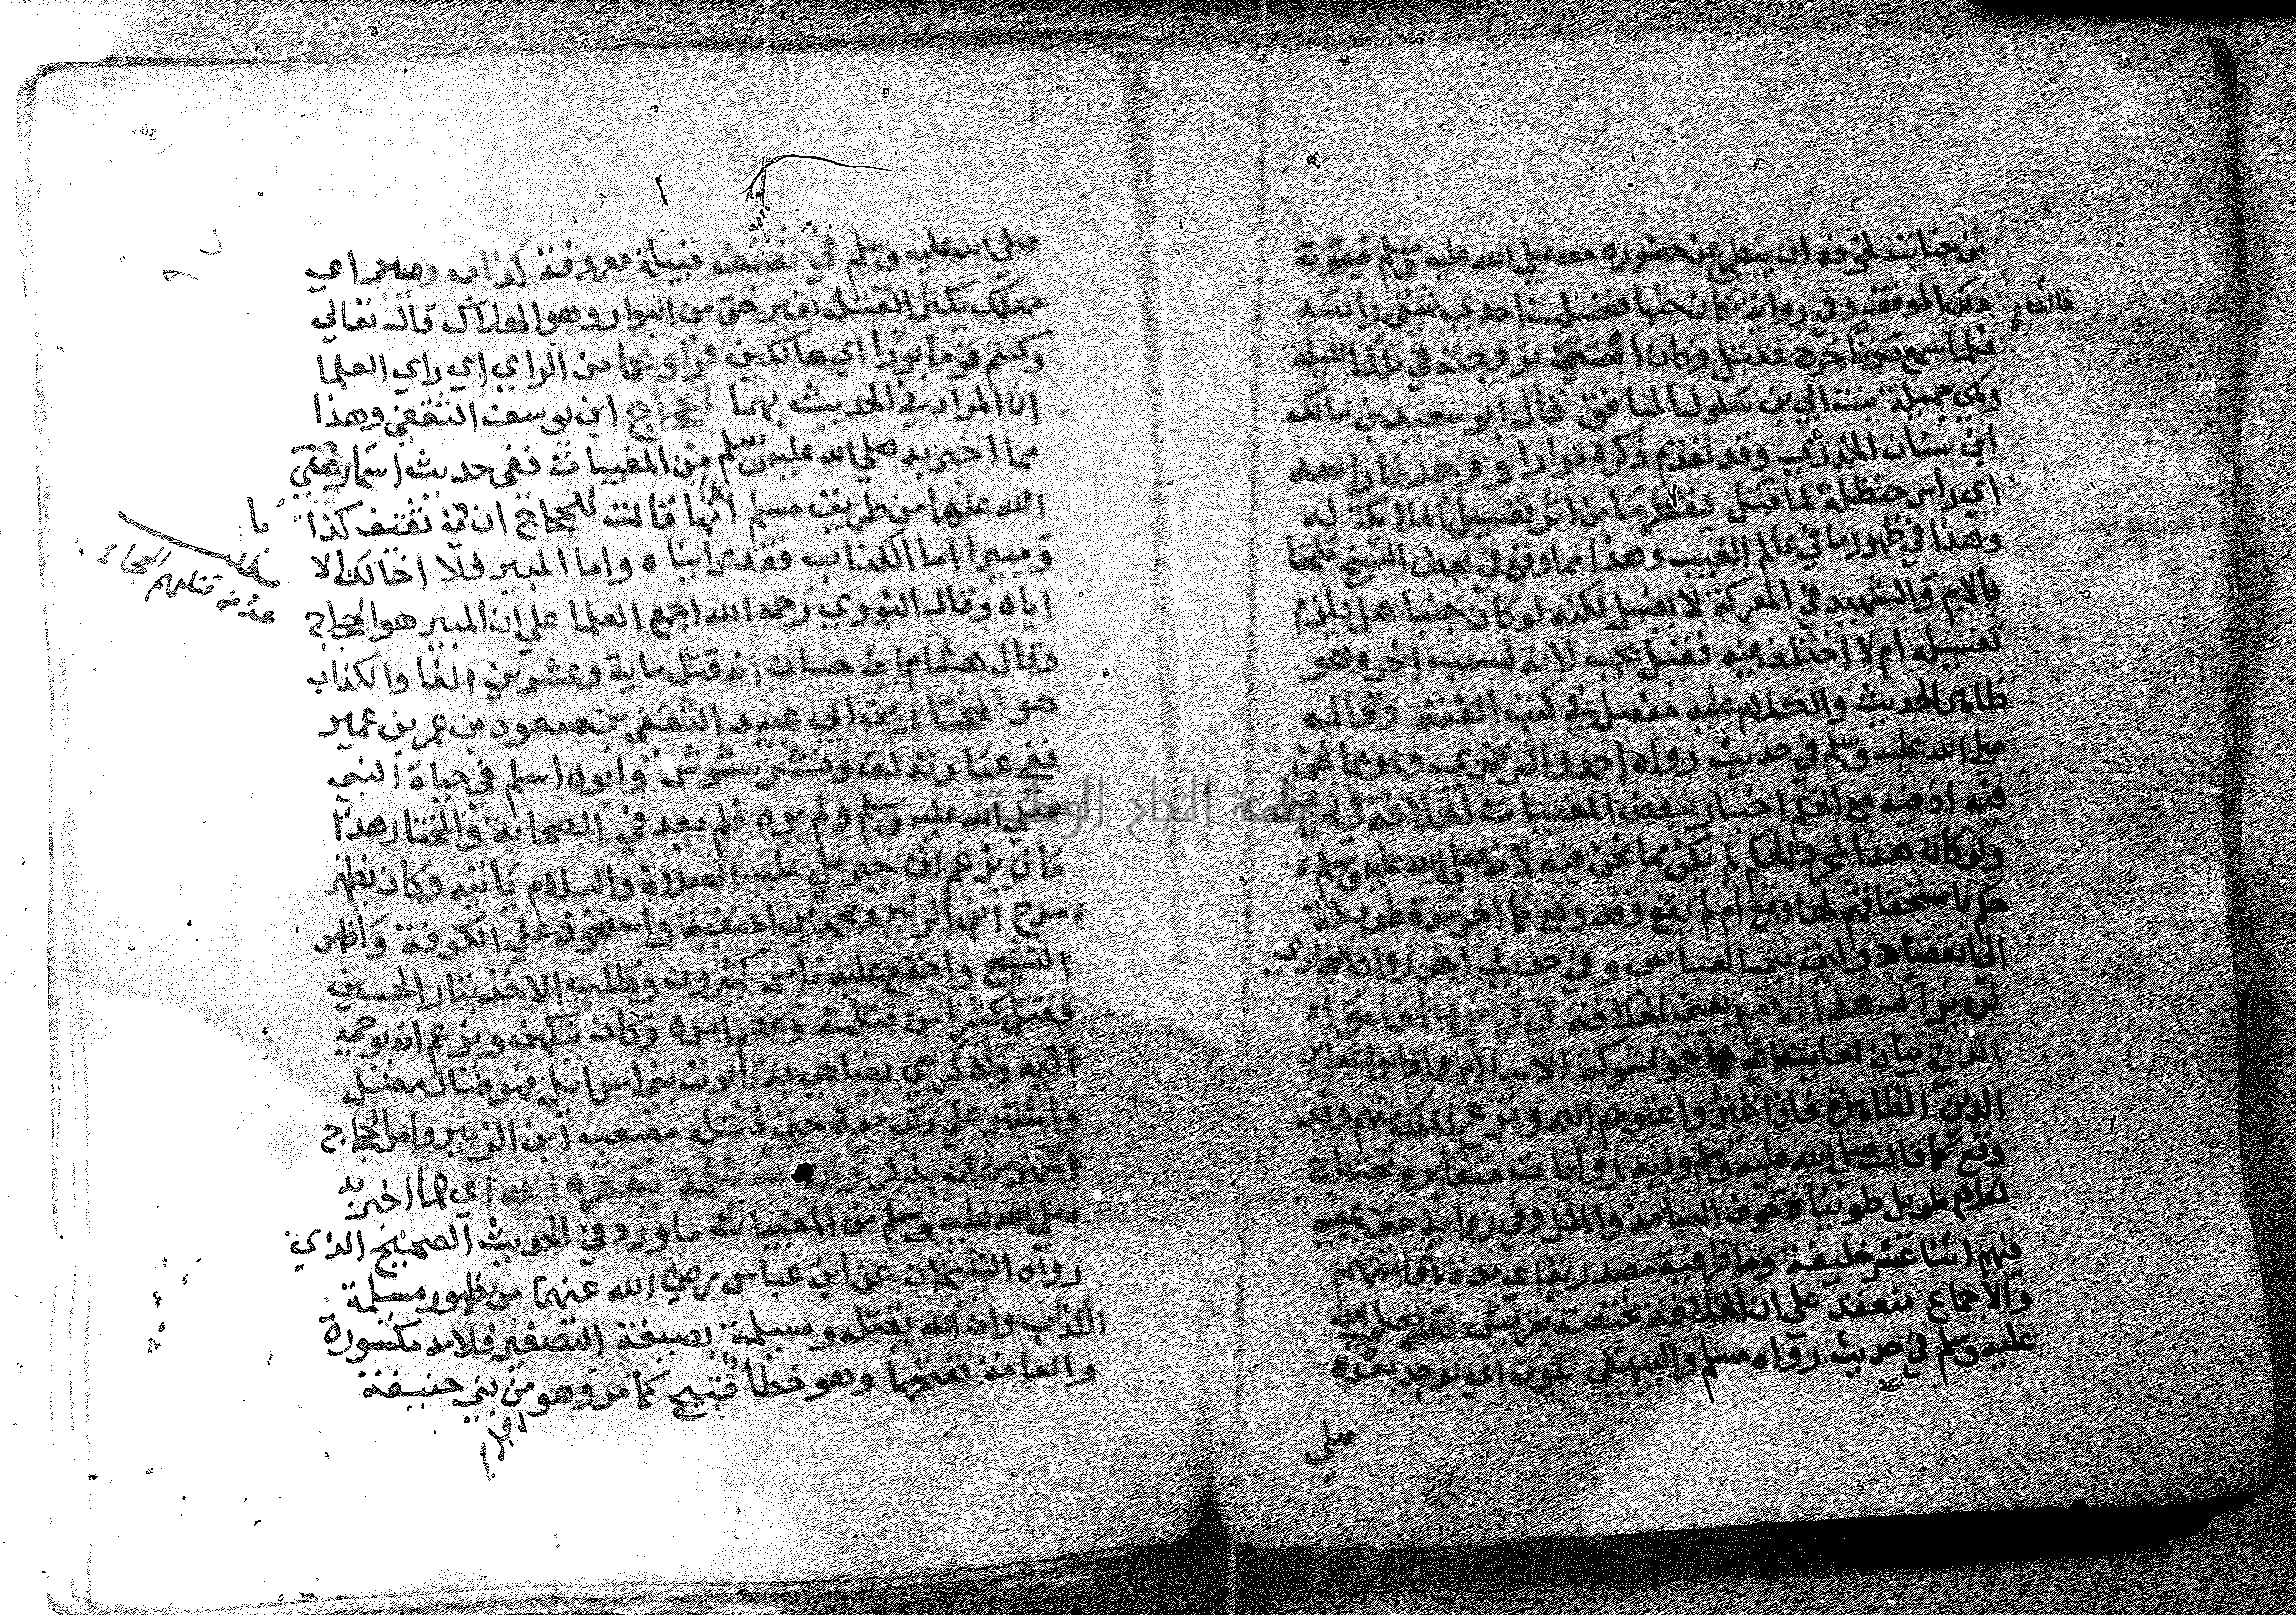 من جنابته لخوفه ان يبطئ عن حضوره معه صلي الله عليه وسلم فيفوته
ذلك الموقف وفي رواية كان جنبا فغسلت احدي شقي راسه
قالت
فلما سمع صوتا خرج فقتل وكان ابتني بزوجته في تلك الليلة
وهي جميلة بنت ابي بن سلول المنافق قال ابو سعيد بن مالك
ابن سنان الخدري وقد تقدم ذكره مرارا ووجدنا راسه
اي راس حنظلة لما قتل يقطر ما من اثر تغسيل الملايكة له
وهذا في ظهور ما في عالم الغيب وهذا مما وقع في بعض النسخ ملحقا
بالام والشهيد في المعركة لا يغسل لكنه لو كان جنبا هل يلزم
تغسيله ام لا اختلف فيه فقيل يجب لانه لسبب اخر وهو
ظاهر الحديث والكلام عليه مفصل في كتب الفقه وقال
صلي الله عليه وسلم في حديث رواه احمد والترمذي وهو مما نحن
فيه اذ فيه مع الحكم اخبار ببعض المغيبات الخلافة في قريش
ولو كان هذا المجرد الحكم لم يكن مما نحن فيه لانه صلي الله عليه وسلم
حكم باستحقاقهم لها وقع ام لم يقع وقد وقع كما اخبر مدة طويلة
الي انقضاء دولت بني العباس وفي حديث اخر رواه البخاري
لن يزال هذا الامر يعني الخلافة في قريش ما اقاموا
الدين بيان لغايته اي حموا شوكة الاسلام واقاموا شعاير
الدين الظاهرة فاذا غيروا غيرهم الله ونزع الملك منهم وقد
وقع كما قال صلي الله عليه وسلم وفيه روايات متغايره تحتاج
لكلام طويل طويناه خوف السامة والملل وفي رواية حتي يمضي
فيهم اثنا عشر خليفة وما ظرفية مصدرية اي مدة اقامتهم
والاجماع منعقد علي ان الخلافة مختصة بقريش وقال صلي الله
عليه وسلم في حديث رواه مسلم والبيهقي يكون اي يوجد بعده
صلي
صلي الله عليه وسلم في ثقيف قبيلة معروفة كذاب ومبير اي
مهلك يكثر القتل بغير حق من البوار وهو الهلاك قال تعالي
وكنتم قوما بورا اي هالكين فراوهما من الراي اي راي العلما
ان المراد في الحديث بهما الحجاج ابن يوسف الثقفي وهذا
مما اخبر به صلي الله عليه وسلم من المغيبات ففي حديث اسما رضي
الله عنهما من طريق مسلم انها قالت للحجاج ان في ثقيف كذابا
ومبيرا اما الكذاب فقد رايناه واما المبير فلا اخالك الا
اياه وقال النووي رحمه الله اجمع العلما علي ان المبير هو الحجاج
عدة من قتلهم الحجاج
وقال هشام ابن حسان انه قتل ماية وعشرين الفا والكذاب
هو المختار بن ابي عبيد الثقفي بن مسعود بن عمر بن عمير
ففي عبارته لف ونشر مشوش وابوه اسلم في حياة النبي
صلي الله عليه وسلم ولم يره فلم يعد في الصحابة والمختار هذا
كان يزعم ان جبريل عليه الصلاة والسلام ياتيه وكان يظهر
مدح ابن الزبير ومحمد بن الحنفية واستحوذ علي الكوفة واظهر
التشيع واجتمع عليه ناس كثيرون وطلب الاخذ بثار الحسين
فقتل كثيرا من قتلته وعظم امره وكان يتكهن ويزعم انه يوحي
اليه وله كرسي يضاهي به تابوت بني اسرائيل فهو ضال مضل
واشتهر علي ذلك مدة حتي قتله مصعب ابن الزبير وامر الحجاج
اشهر من ان يذكر وان مسيلمة يعقره الله اي مما اخبر به
صلي الله عليه وسلم من المغيبات ما ورد في الحديث الصحيح الذي
رواه الشيخان عن ابن عباس رضي الله عنهما من ظهور مسيلمة
الكذاب وان الله يقتله ومسيلمة بصيغة التصغير فلامه مكسورة
والعامة تفتحها وهو خطأ قبيح كما مر وهو من بني حنيفة